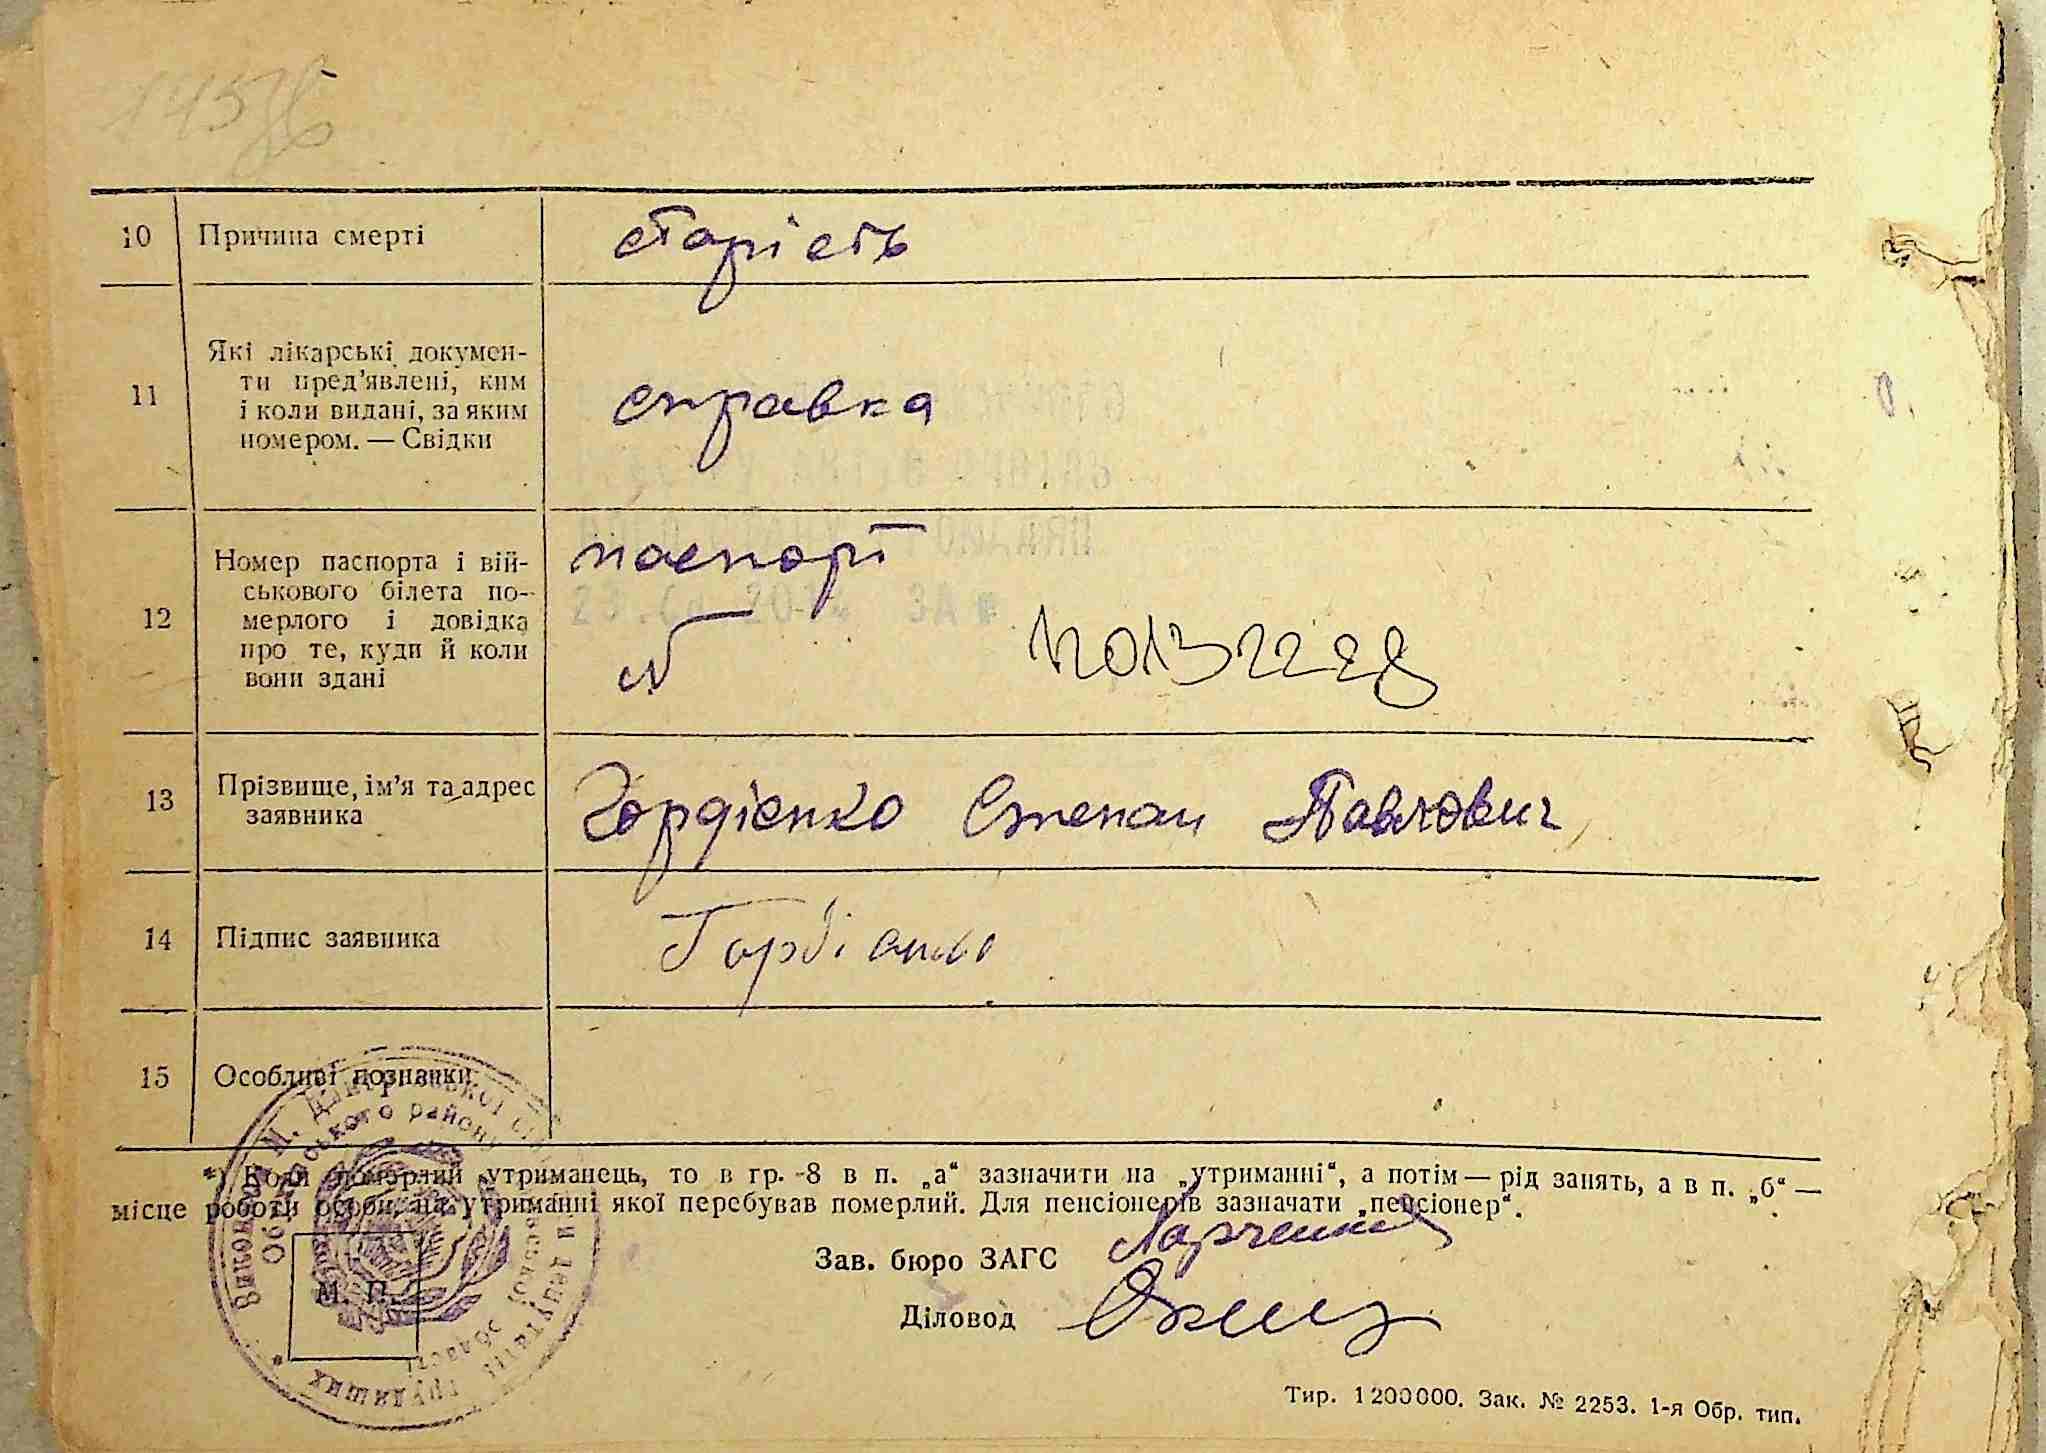 10 Причина смерті старість
11 Які лікарські докумен-
ти пред'явлені, ким
і коли видані, за яким
номером. — Свідки
справка
12 Номер паспорта і вій-
ськового білета по-
мерлого і довідка
про те, куди й коли
вони здані
паспорт
№
13 Прізвище, ім'я та адрес
заявника
Гордієнко Степан Павлович
14 Підпис заявника Гордієнко
15 Особливі познаки
*) Коли померлий утриманець, то в гр. 8 в п. „а“ зазначити на „утриманні“, а потім — рід занять, а в п. „б“ —
місце роботи особи, на утриманні якої перебував померлий. Для пенсіонерів зазначати „пенсіонер“.
Зав. бюро ЗАГС
Діловод
М. П.
трудящих
області
району
Тир. 1200000. Зак. № 2253. 1-я Обр. тип.